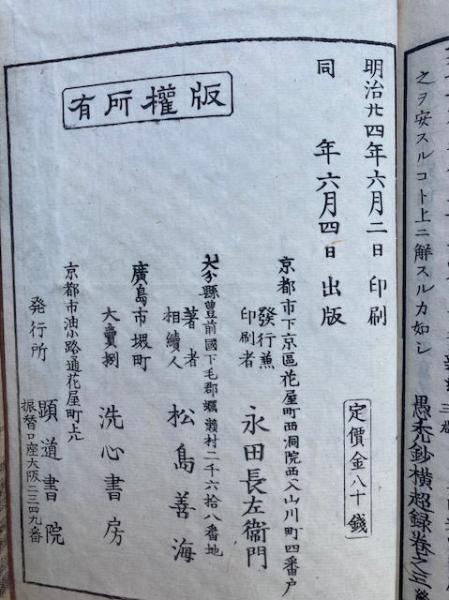 之ヲ安スルコト上ニ解スルカ如シ
愚禿鈔横超録卷之三
明治廿四年六月二日 印刷
同 年六月四日 出版
版權所有
定價金八十錢
京都市下京區花屋町西洞院西入山川町四番戸
發行兼
印刷者
永田長左衞門
大分縣豊前國下毛郡蠣瀬村二千六拾八番地
著者
相續人
松島善海
廣島市堺町
大賣捌
洗心書房
京都市油小路通花屋町上ル
発行所
顕道書院
振替口座大阪二三四九番